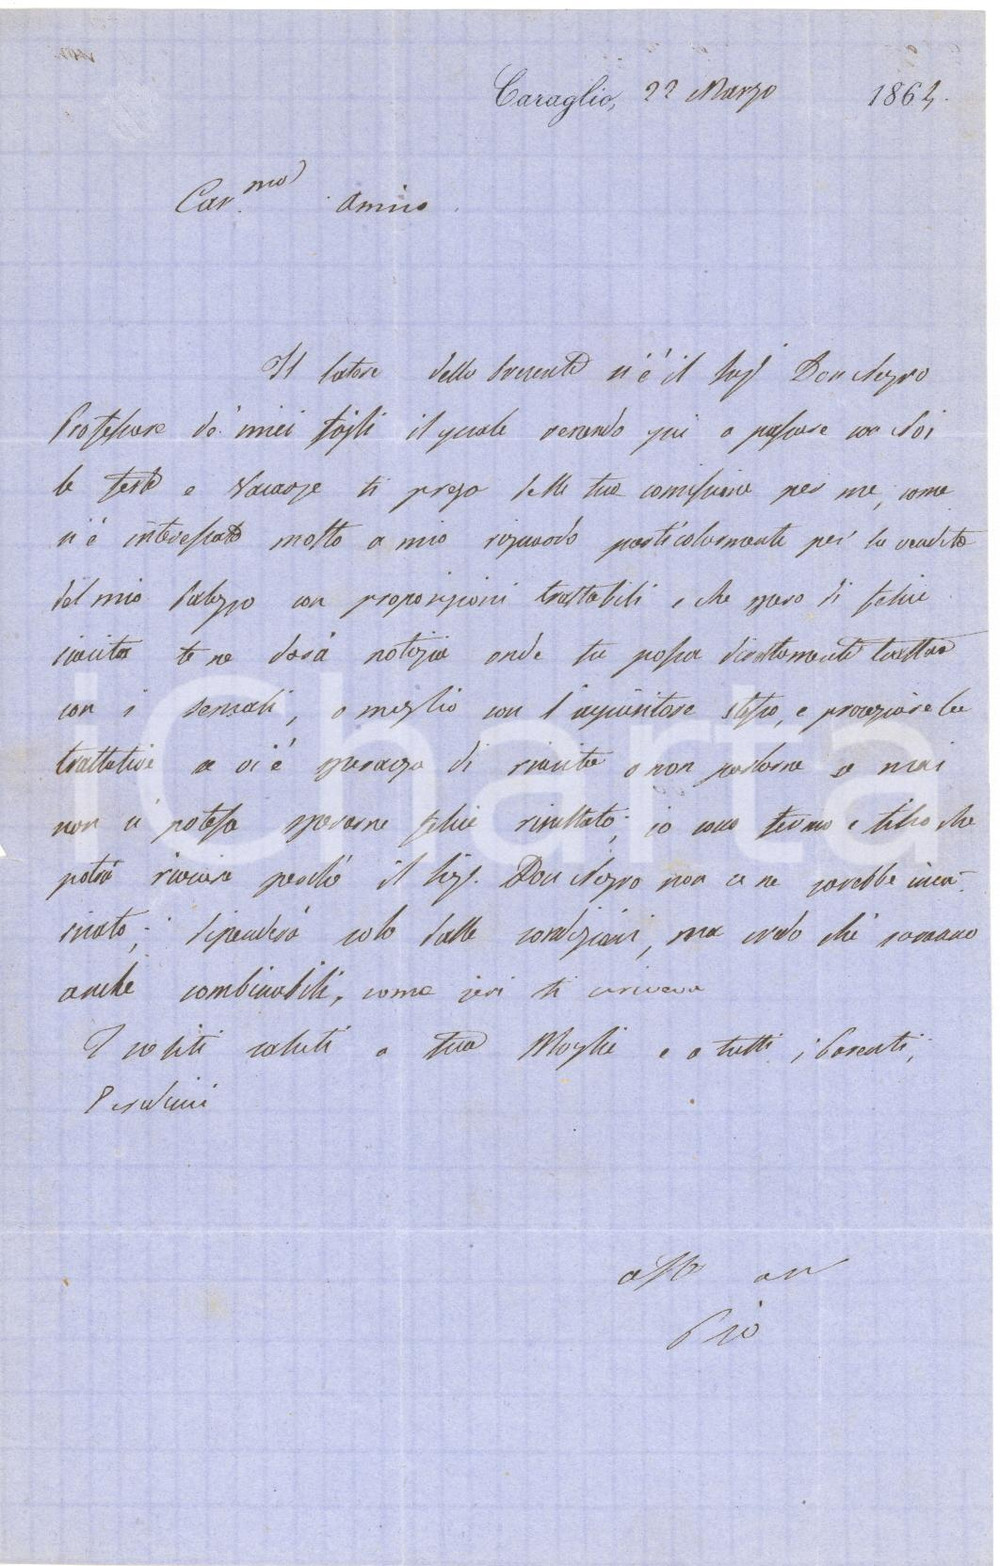 Caraglio, 22 Marzo 1864.
Car.mo Amico.
Il latore della presente si è il Sig.r Don Negro
Professore de' miei figli il quale venendo qui a passare con Noi
le feste e Vacanze ti prego della tua commissione per me, come
si è interessato molto a mio riguardo particolarmente per la vendita
del mio Palazzo con proposizioni trattabili e che spero di felice
riuscita te ne darà notizia onde tu possa direttamente trattare
con i sensali, o meglio con l'acquisitore stesso, e le
trattative se vi è speranza di riuscita o non parlarne se mai
non si potesse sperarne felice risultato; io sono fermo e che
potrà riuscire perché il Sig.r Don Negro non se ne sarebbe inca-
ricato; dipenderà solo dalle condizioni, ma credo che saranno
anche combinabili, come ieri ti scriveva
I soliti saluti a tua Moglie e a tutti i Parenti,
aff.o am
Pio
iCharta